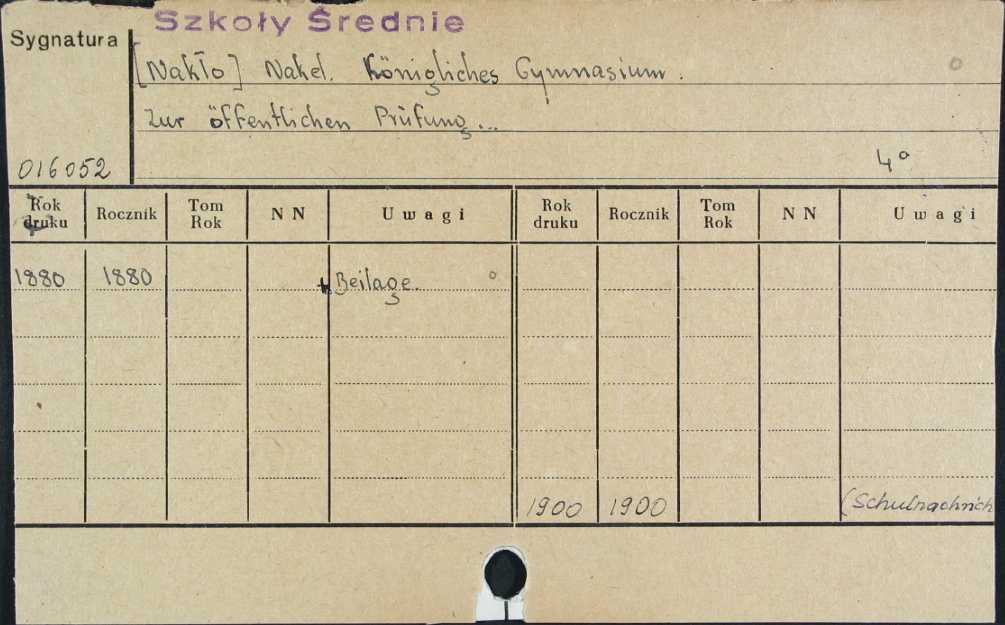 Szkoły Średnie
Sygnatura
[Nakło] Nakel. Königliches Gymnasium.
Zur öffentlichen Prüfung...
016052
4°
Rok druku Rocznik Tom Rok NN Uwagi Rok druku Rocznik Tom Rok NN Uwagi
1880 1880 + Beilage.
1900 1900 (Schulnachrich